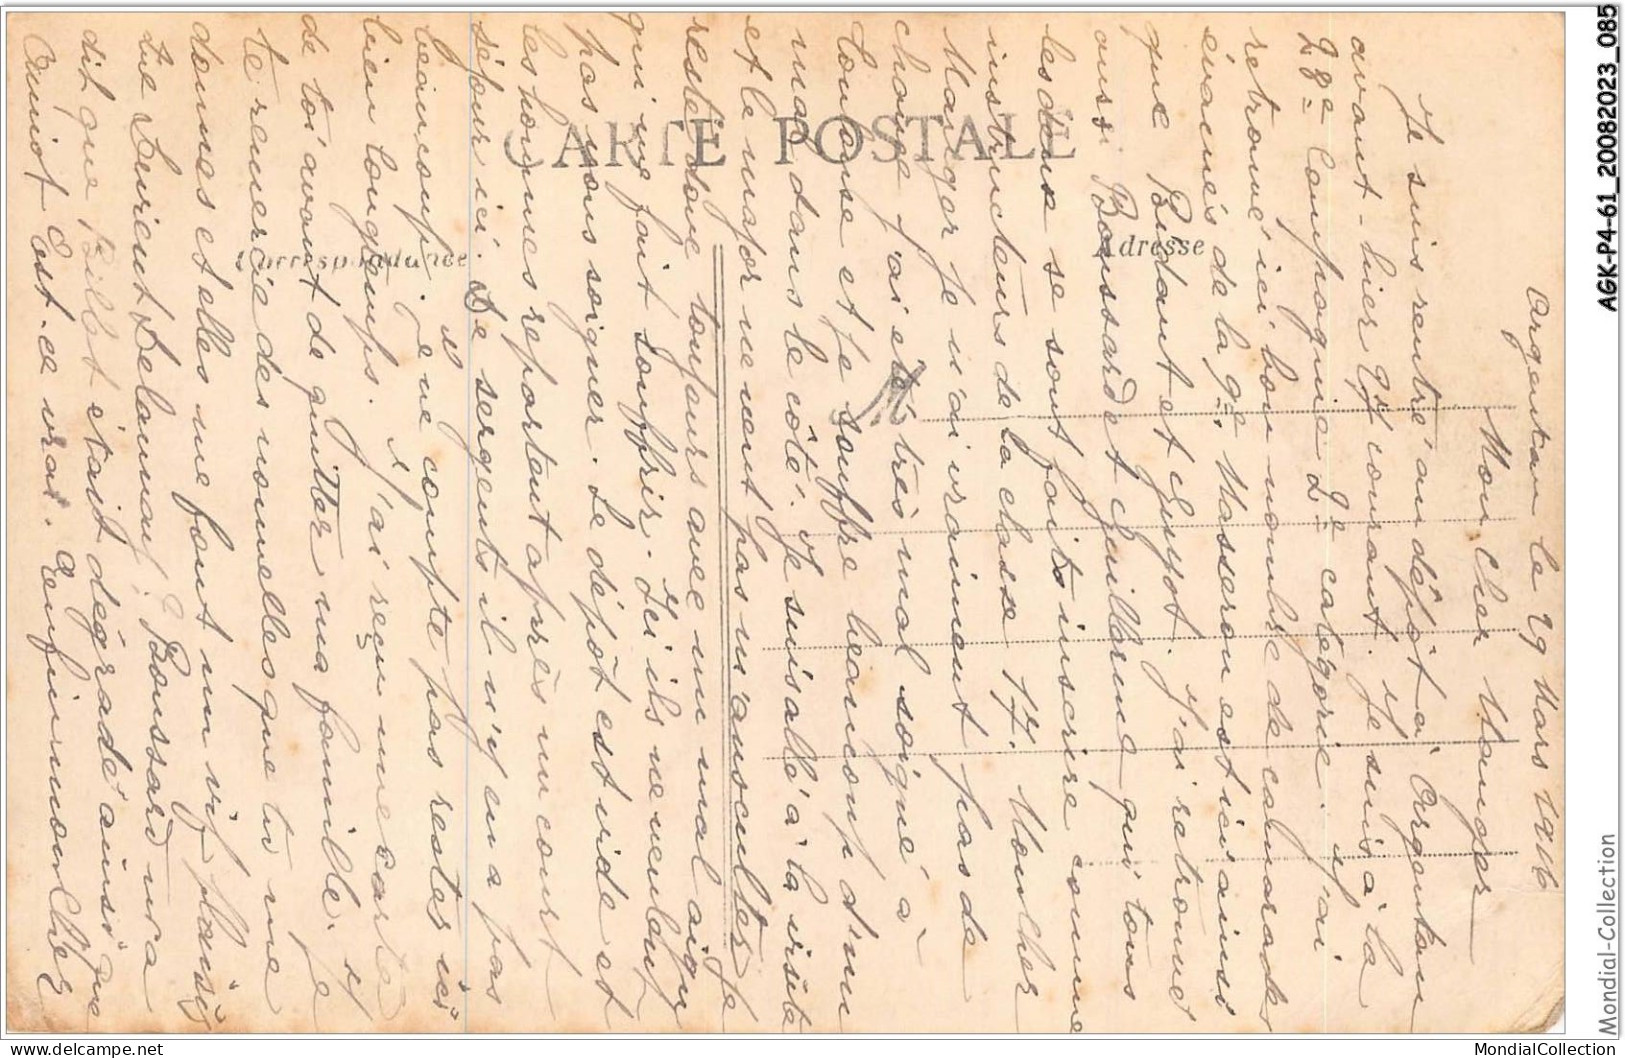 Argentan le 29 Mars 1916
Mon Cher Manger
Je suis rentré au dépôt à Argentan
avant-hier 27 courant. Je suis à la
28e Compagnie 2e catégorie. J'ai
retrouvé ici bon nombre de camarades
évacués de la 9e. Masseron est ici ainsi
que Bidant et Guyot. J'ai retrouvé
aussi Boussard et Guillorme qui tous
les deux se sont faits inscrire comme
instructeurs de la classe 17. Mon cher
Manger je n'ai vraiment pas de
chance j'ai été très mal soigné à
Toulouse et je souffre beaucoup d'un
mal dans le côté. Je suis allé à la visite
et le major ne veut pas m'ausculter je
reste donc toujours avec un mal aigu
qui me fait souffrir. Ici ils ne veulent
pas nous soigner. Le dépôt est vide et
les hommes repartent après un court
séjour ici. De sergents il n'y en a pas
beaucoup. Je ne compte pas rester ici
bien longtemps. J'ai reçu une carte
de toi avant de quitter ma famille. Je
te remercie des nouvelles que tu me
donnes et elles me font un vif plaisir
Boussard m'a
dit que Billet était dégradé ainsi que
Cuniot Est-ce vrai. Enfin mon Cher
CARTE POSTALE
Correspondance
Adresse
M
AGK-P4-61_20082023_085
Mondial-Collection
MondialCollection